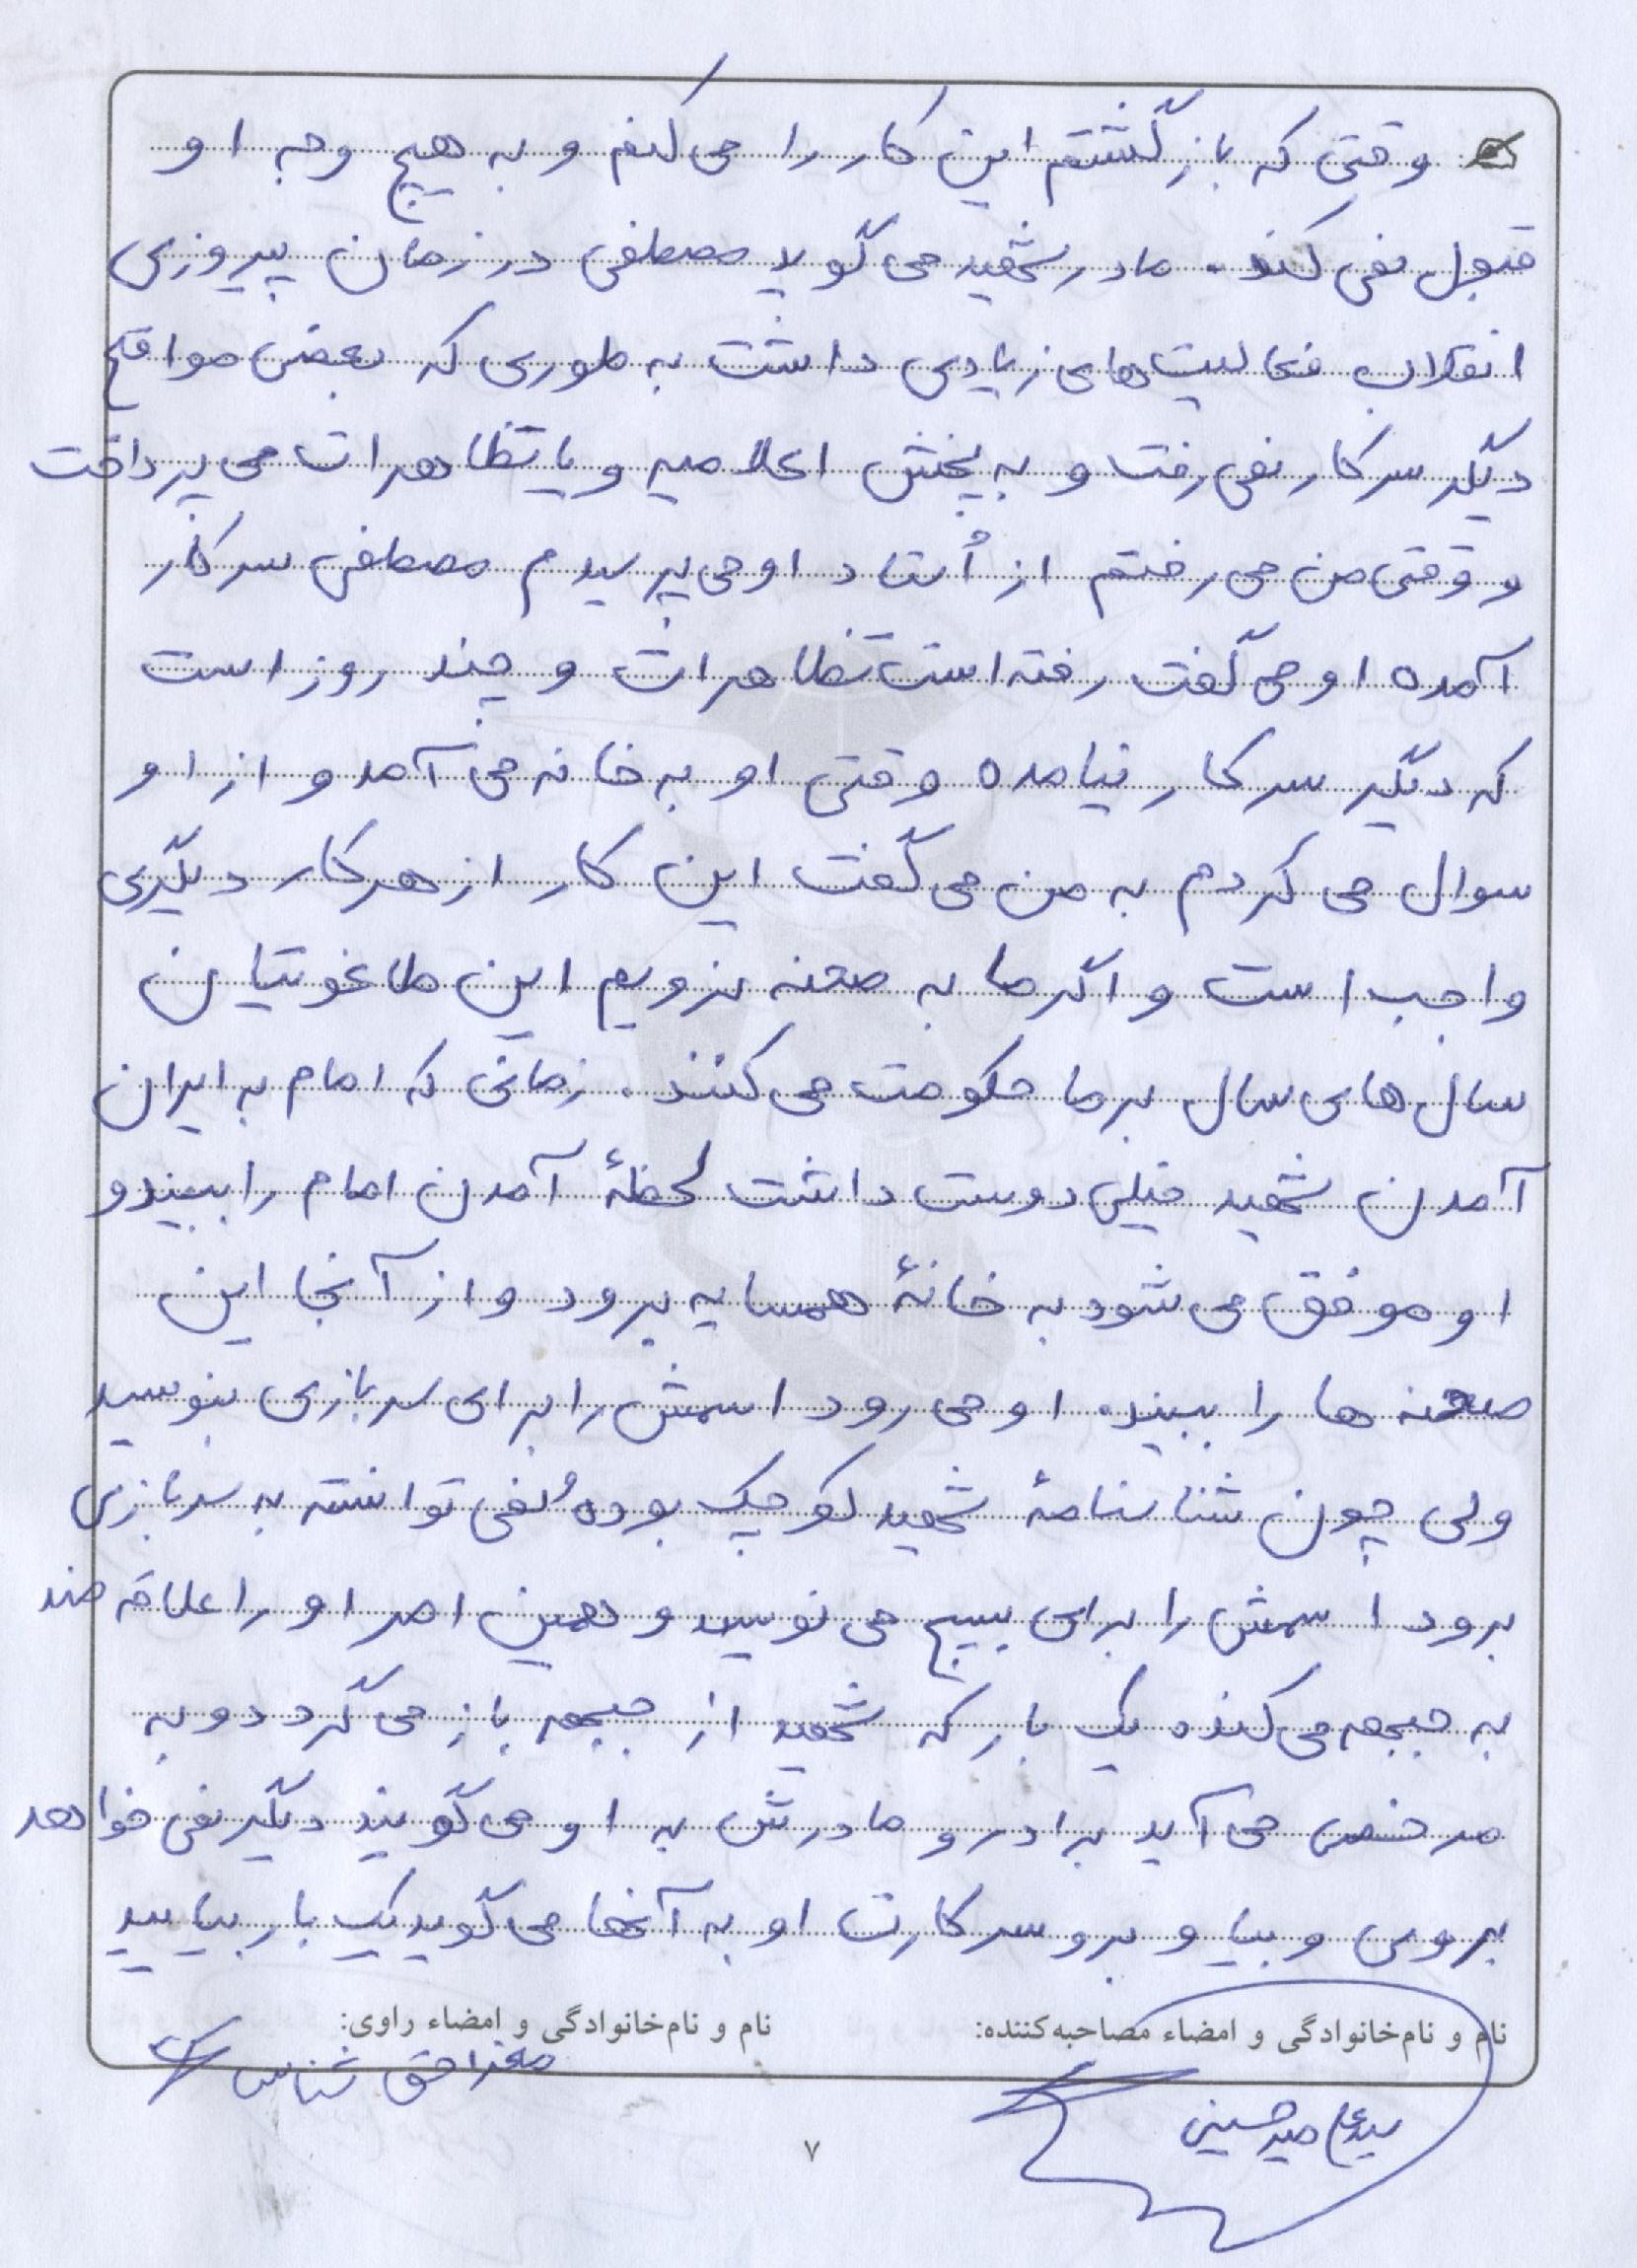 وقتی که بازگشتم این کار را می کنم و به هیچ وجه او
قبول نمی کند. مادر شهید می گوید مصطفی در زمان پیروزی
انقلاب فعالیت های زیادی داشت به طوری که بعضی مواقع
دیگر سر کار نمی رفت و به پخش اعلامیه و یا تظاهرات می پرداخت
و وقتی من می رفتم از اُستاد او می پرسیدم مصطفی سر کار
آمده او می گفت رفته است تظاهرات و چند روز است
که دیگر سر کار نیامده وقتی او به خانه می آمد و از او
سوال می کردم به من می گفت این کار از هر کار دیگری
واجب است و اگر ما به صحنه نرویم این طاغوتیان
سال های سال بر ما حکومت می کنند. زمانی که امام به ایران
آمدن شهید خیلی دوست داشت لحظهٔ آمدن امام را ببیند و
او موفق می شود به خانهٔ همسایه برود و از آنجا این
صحنه ها را ببیند. او می رود اسمش را برای سربازی بنویسد
ولی چون شناسنامهٔ شهید کوچک بوده نمی توانسته به سربازی
برود اسمش را برای بسیج می نویسد و همین امر او را علاقه مند
به جبهه می کند. یک بار که شهید از جبهه باز می گردد و به
مرخصی می آید برادر و مادرش به او می گویند دیگر نمی خواهد
بروی و بیا و برو سر کارت او به آنها می گوید یک بار بیایید
نام و نام خانوادگی و امضاء مصاحبه کننده:
نام و نام خانوادگی و امضاء راوی:
حق شناس
حسینی
۷